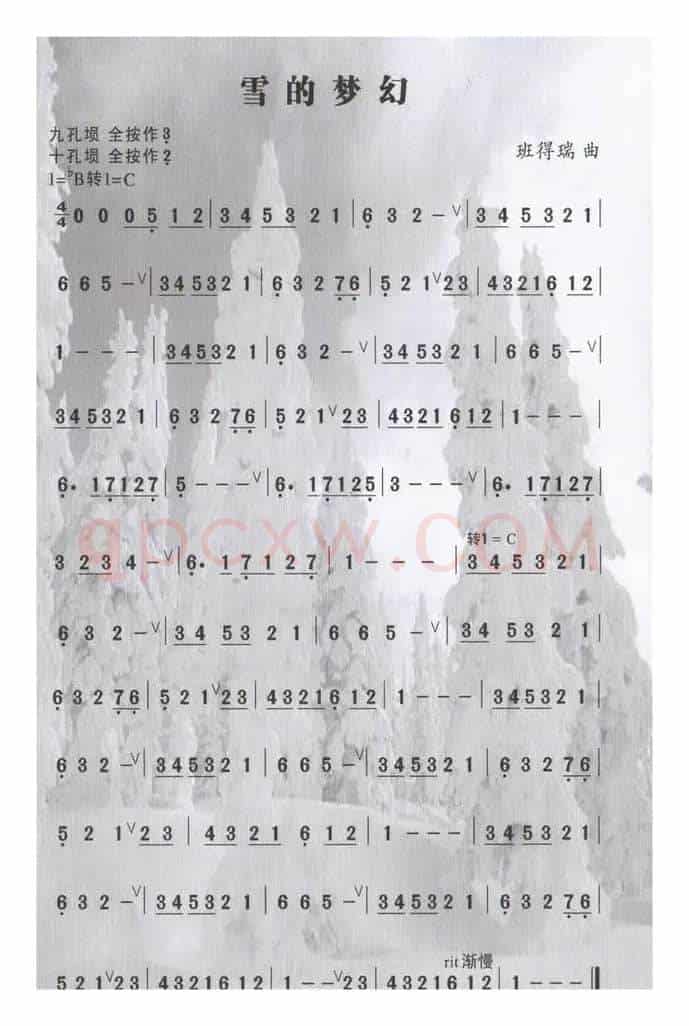 雪的梦幻
九孔埙 全按作3̣
十孔埙 全按作2̣
班得瑞 曲
1=ᵇB转1=C
4/4 0 0 0 5̣ 1 2 | 3 4 5 3 2 1 | 6̣ 3 2 – ∨ | 3 4 5 3 2 1 |
6 6 5 – ∨ | 3 4 5 3 2 1 | 6̣ 3 2 7̣ 6̣ | 5̣ 2 1 ∨ 2 3 | 4 3 2 1 6̣ 1 2 |
1 – – – | 3 4 5 3 2 1 | 6̣ 3 2 – ∨ | 3 4 5 3 2 1 | 6 6 5 – ∨ |
3 4 5 3 2 1 | 6̣ 3 2 7̣ 6̣ | 5̣ 2 1 ∨ 2 3 | 4 3 2 1 6̣ 1 2 | 1 – – – |
6̣· 1 7̣ 1 2 7̣ | 5̣ – – – ∨ | 6̣· 1 7̣ 1 2 5̣ | 3 – – – ∨ | 6̣· 1 7̣ 1 2 7̣ |
转1=C
3 2 3 4 – ∨ | 6̣· 1 7̣ 1 2 7̣ | 1 – – – | 3 4 5 3 2 1 |
6̣ 3 2 – ∨ | 3 4 5 3 2 1 | 6 6 5 – ∨ | 3 4 5 3 2 1 |
6̣ 3 2 7̣ 6̣ | 5̣ 2 1 ∨ 2 3 | 4 3 2 1 6̣ 1 2 | 1 – – – | 3 4 5 3 2 1 |
6̣ 3 2 – ∨ | 3 4 5 3 2 1 | 6 6 5 – ∨ | 3 4 5 3 2 1 | 6̣ 3 2 7̣ 6̣ |
5̣ 2 1 ∨ 2 3 | 4 3 2 1 6̣ 1 2 | 1 – – – | 3 4 5 3 2 1 |
6̣ 3 2 – ∨ | 3 4 5 3 2 1 | 6 6 5 – ∨ | 3 4 5 3 2 1 | 6̣ 3 2 7̣ 6̣ |
rit渐慢
5 2 1 ∨ 2 3 | 4 3 2 1 6 1 2 | 1 – – – ∨ | 2 3 | 4 3 2 1 6 1 2 | 1 – – – ‖
qpcxw.COM